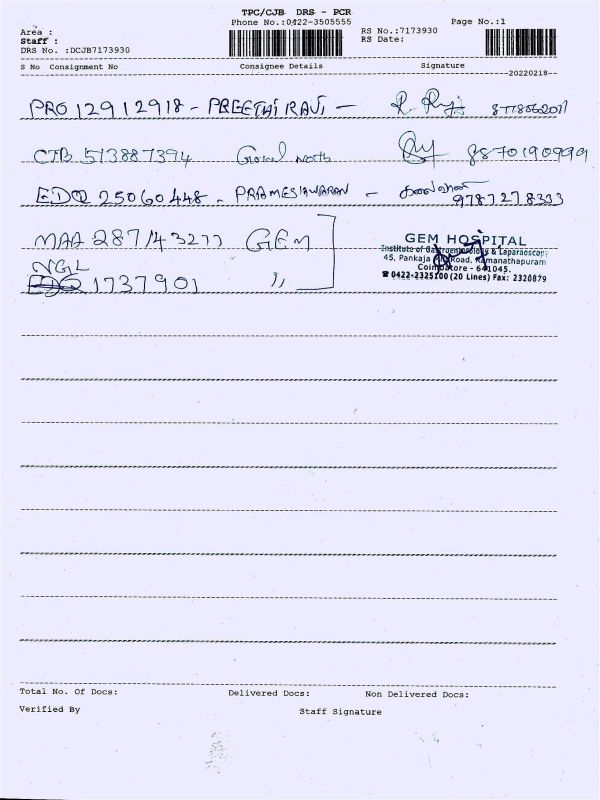 TPC/CJB DRS - PCR
Phone No.:0422-3505555 Page No.:1
Area : RS No.:7173930
Staff : RS Date:
DRS No. :DCJB7173930
S No Consignment No Consignee Details Signature
--20220218--
PRO 12912918 - PREETHI RAVI -
CTB 513887394 8870190999
EDQ 25060448 - PRAMESHWARAN - 9787278333
MAA 287143277 GEM
NGL
1737901 "
GEM HOSPITAL
Institute of Gastroenterology & Laparaoscopy
45, Pankaja Road, Ramanathapuram
Coimbatore - 641045.
☎ 0422-2325100 (20 Lines) Fax: 2320879
Total No. Of Docs: Delivered Docs: Non Delivered Docs:
Verified By Staff Signature